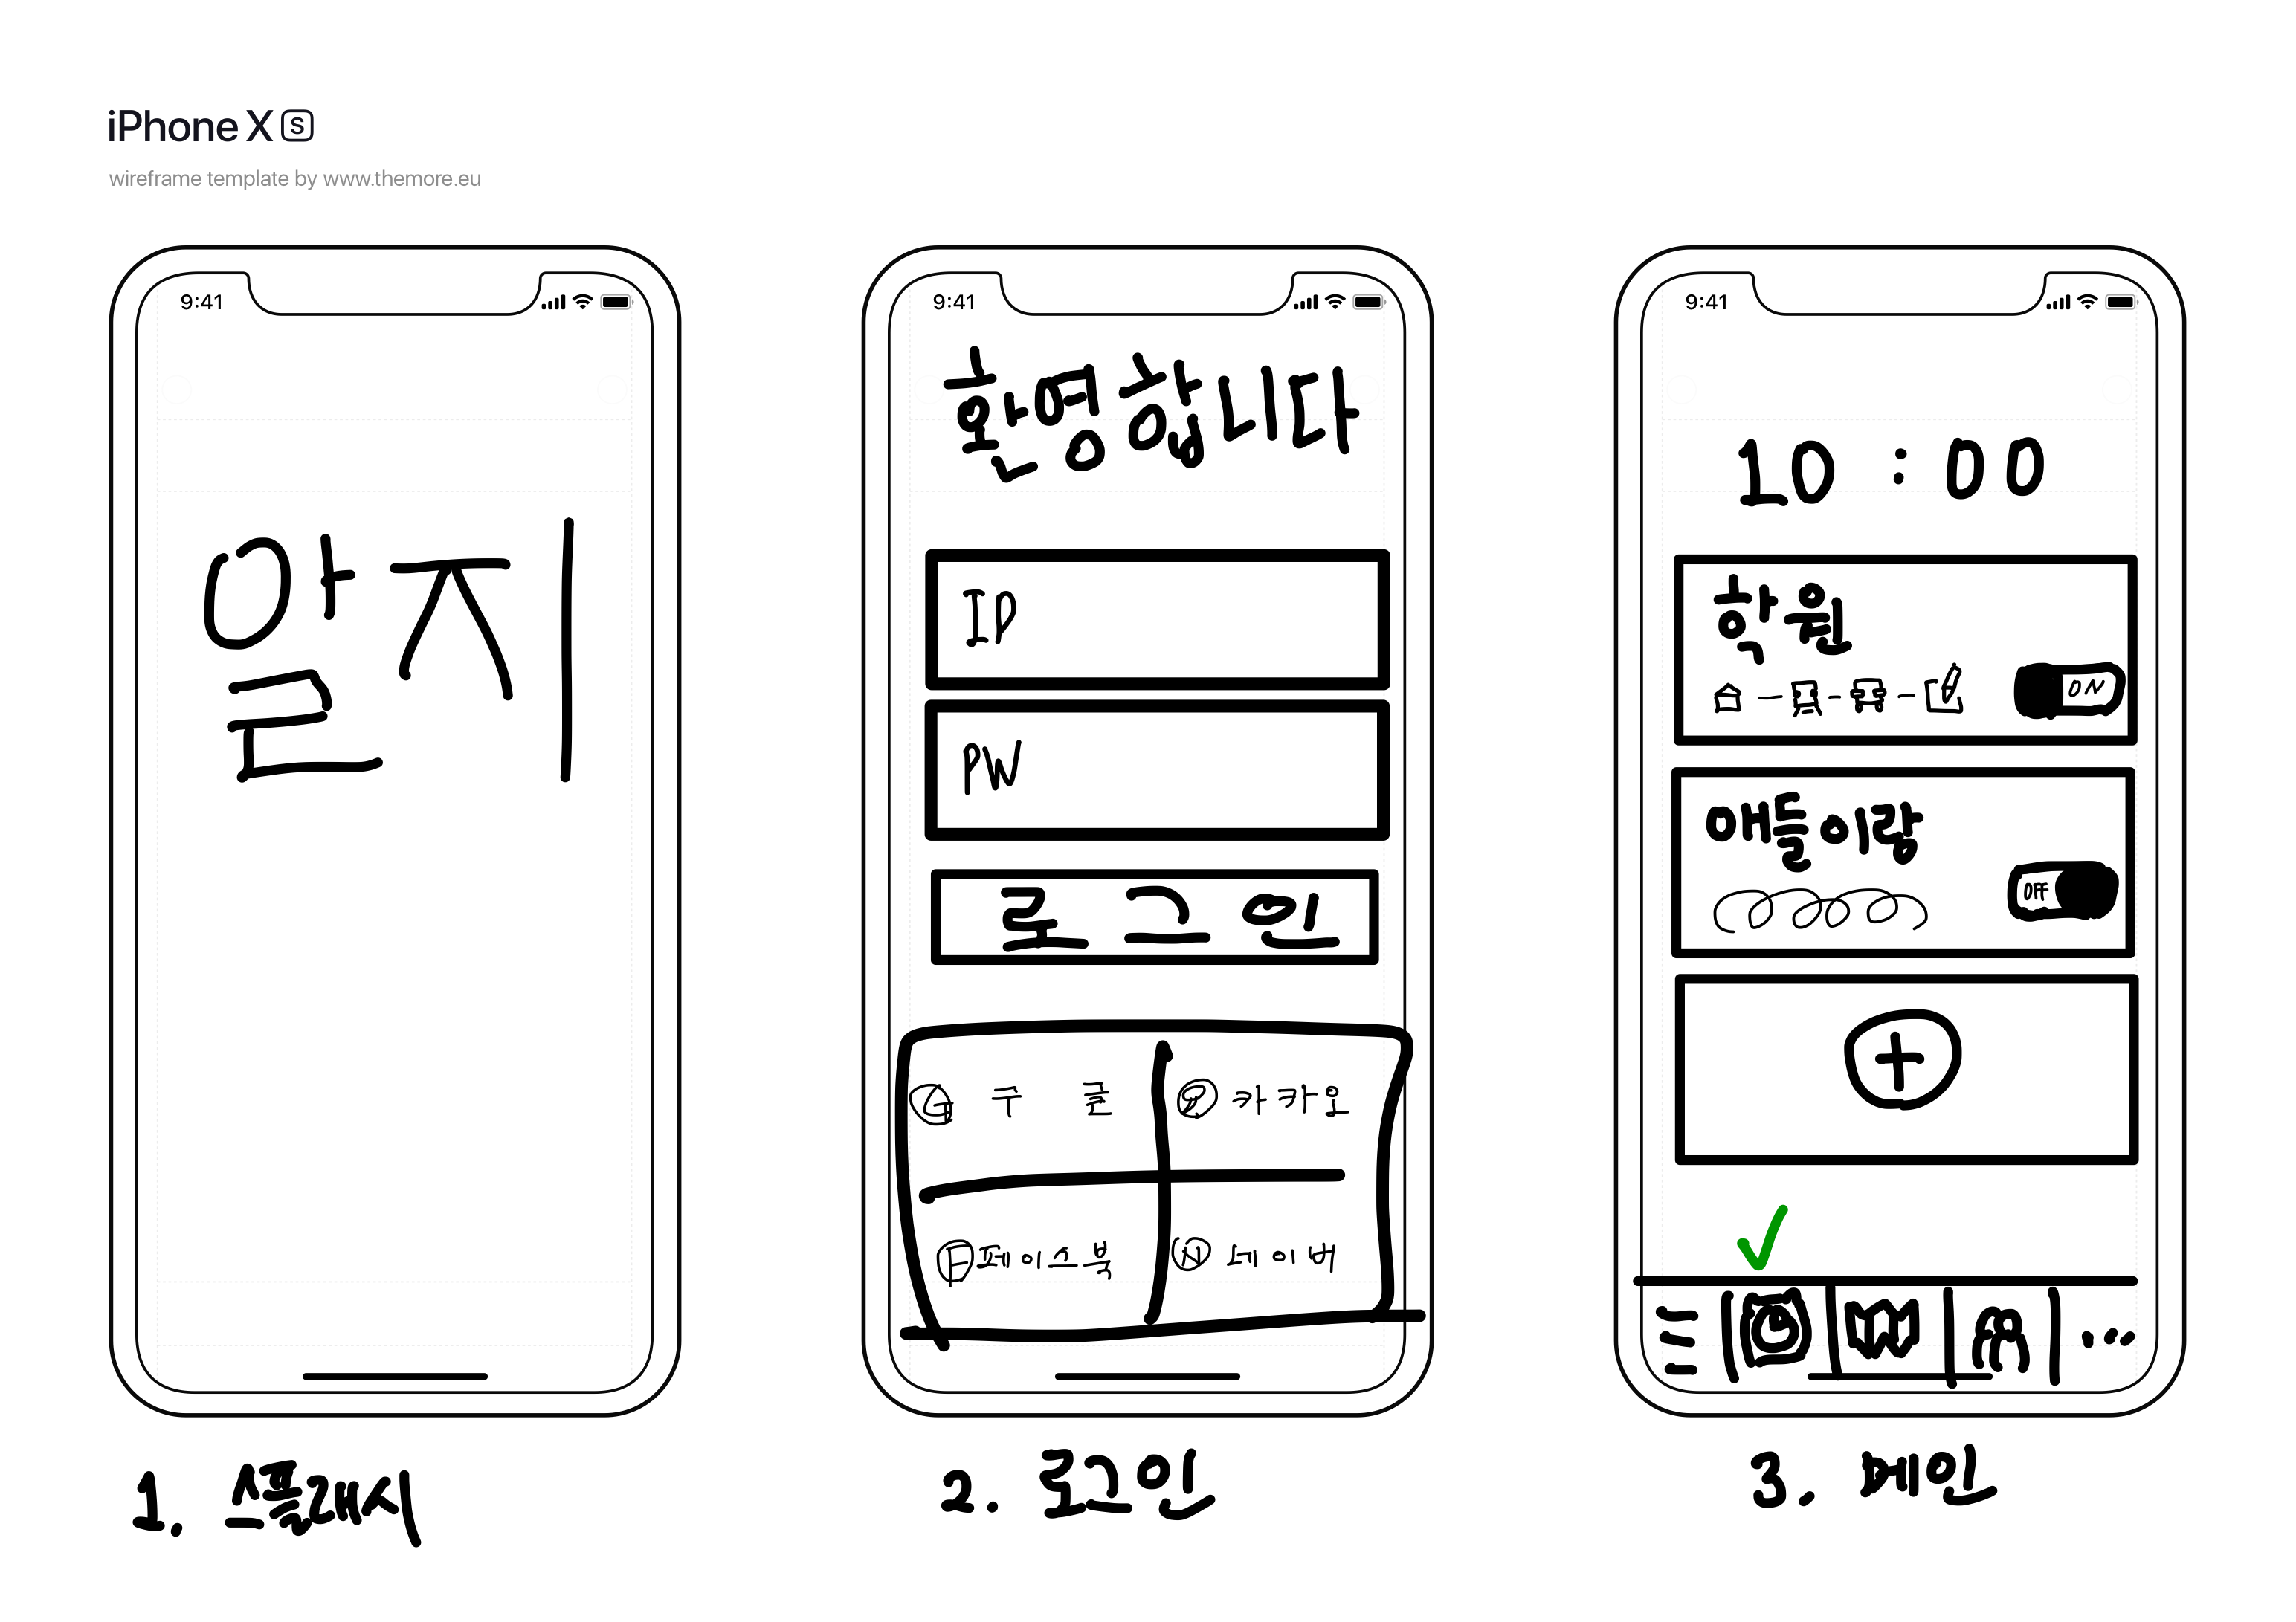 iPhone X S
wireframe template by www.themore.eu
9:41
알지
1. 스플래시
9:41
환영합니다
ID
PW
로그인
G 구글
카카오
F 페이스북
N 네이버
2. 로그인
9:41
10:00
학원
ON
애들이랑
OFF
3. 메인